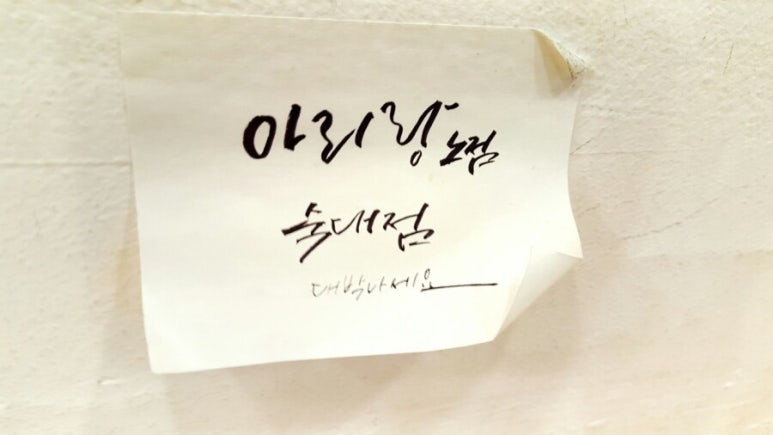 아리랑 노점
숙대점
대박나세요